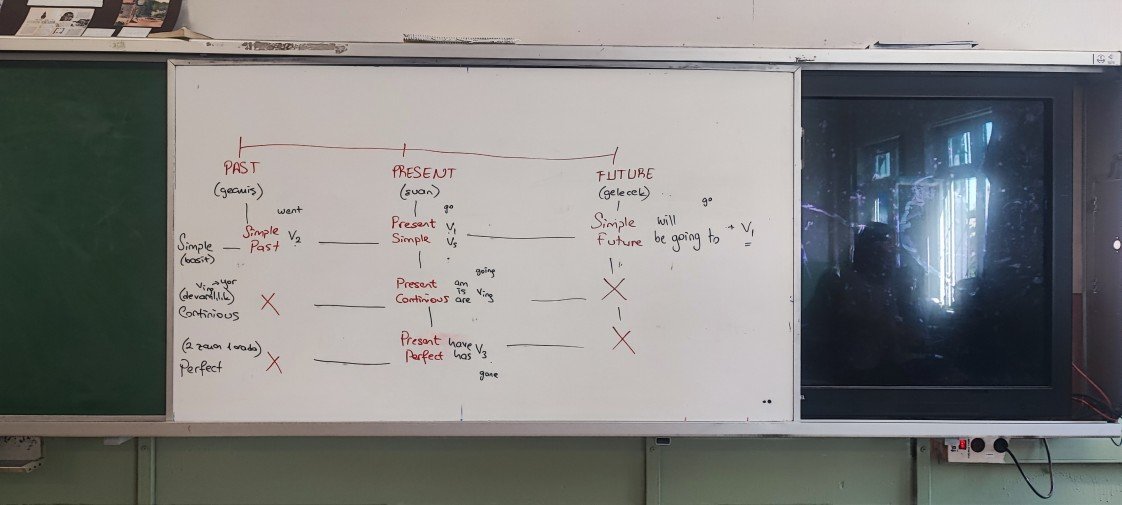 PAST PRESENT FUTURE
(geçmiş) (şuan) (gelecek)
went go go
Simple Past V2 Present Simple V1 Vs Simple Future will be going to → V1
Simple
(basit)
going
Ving → yor
(devamlılık)
Continious
X Present Continious am is are Ving X
(2 zaman 1 arada)
Perfect
X Present Perfect have has V3 X
gone